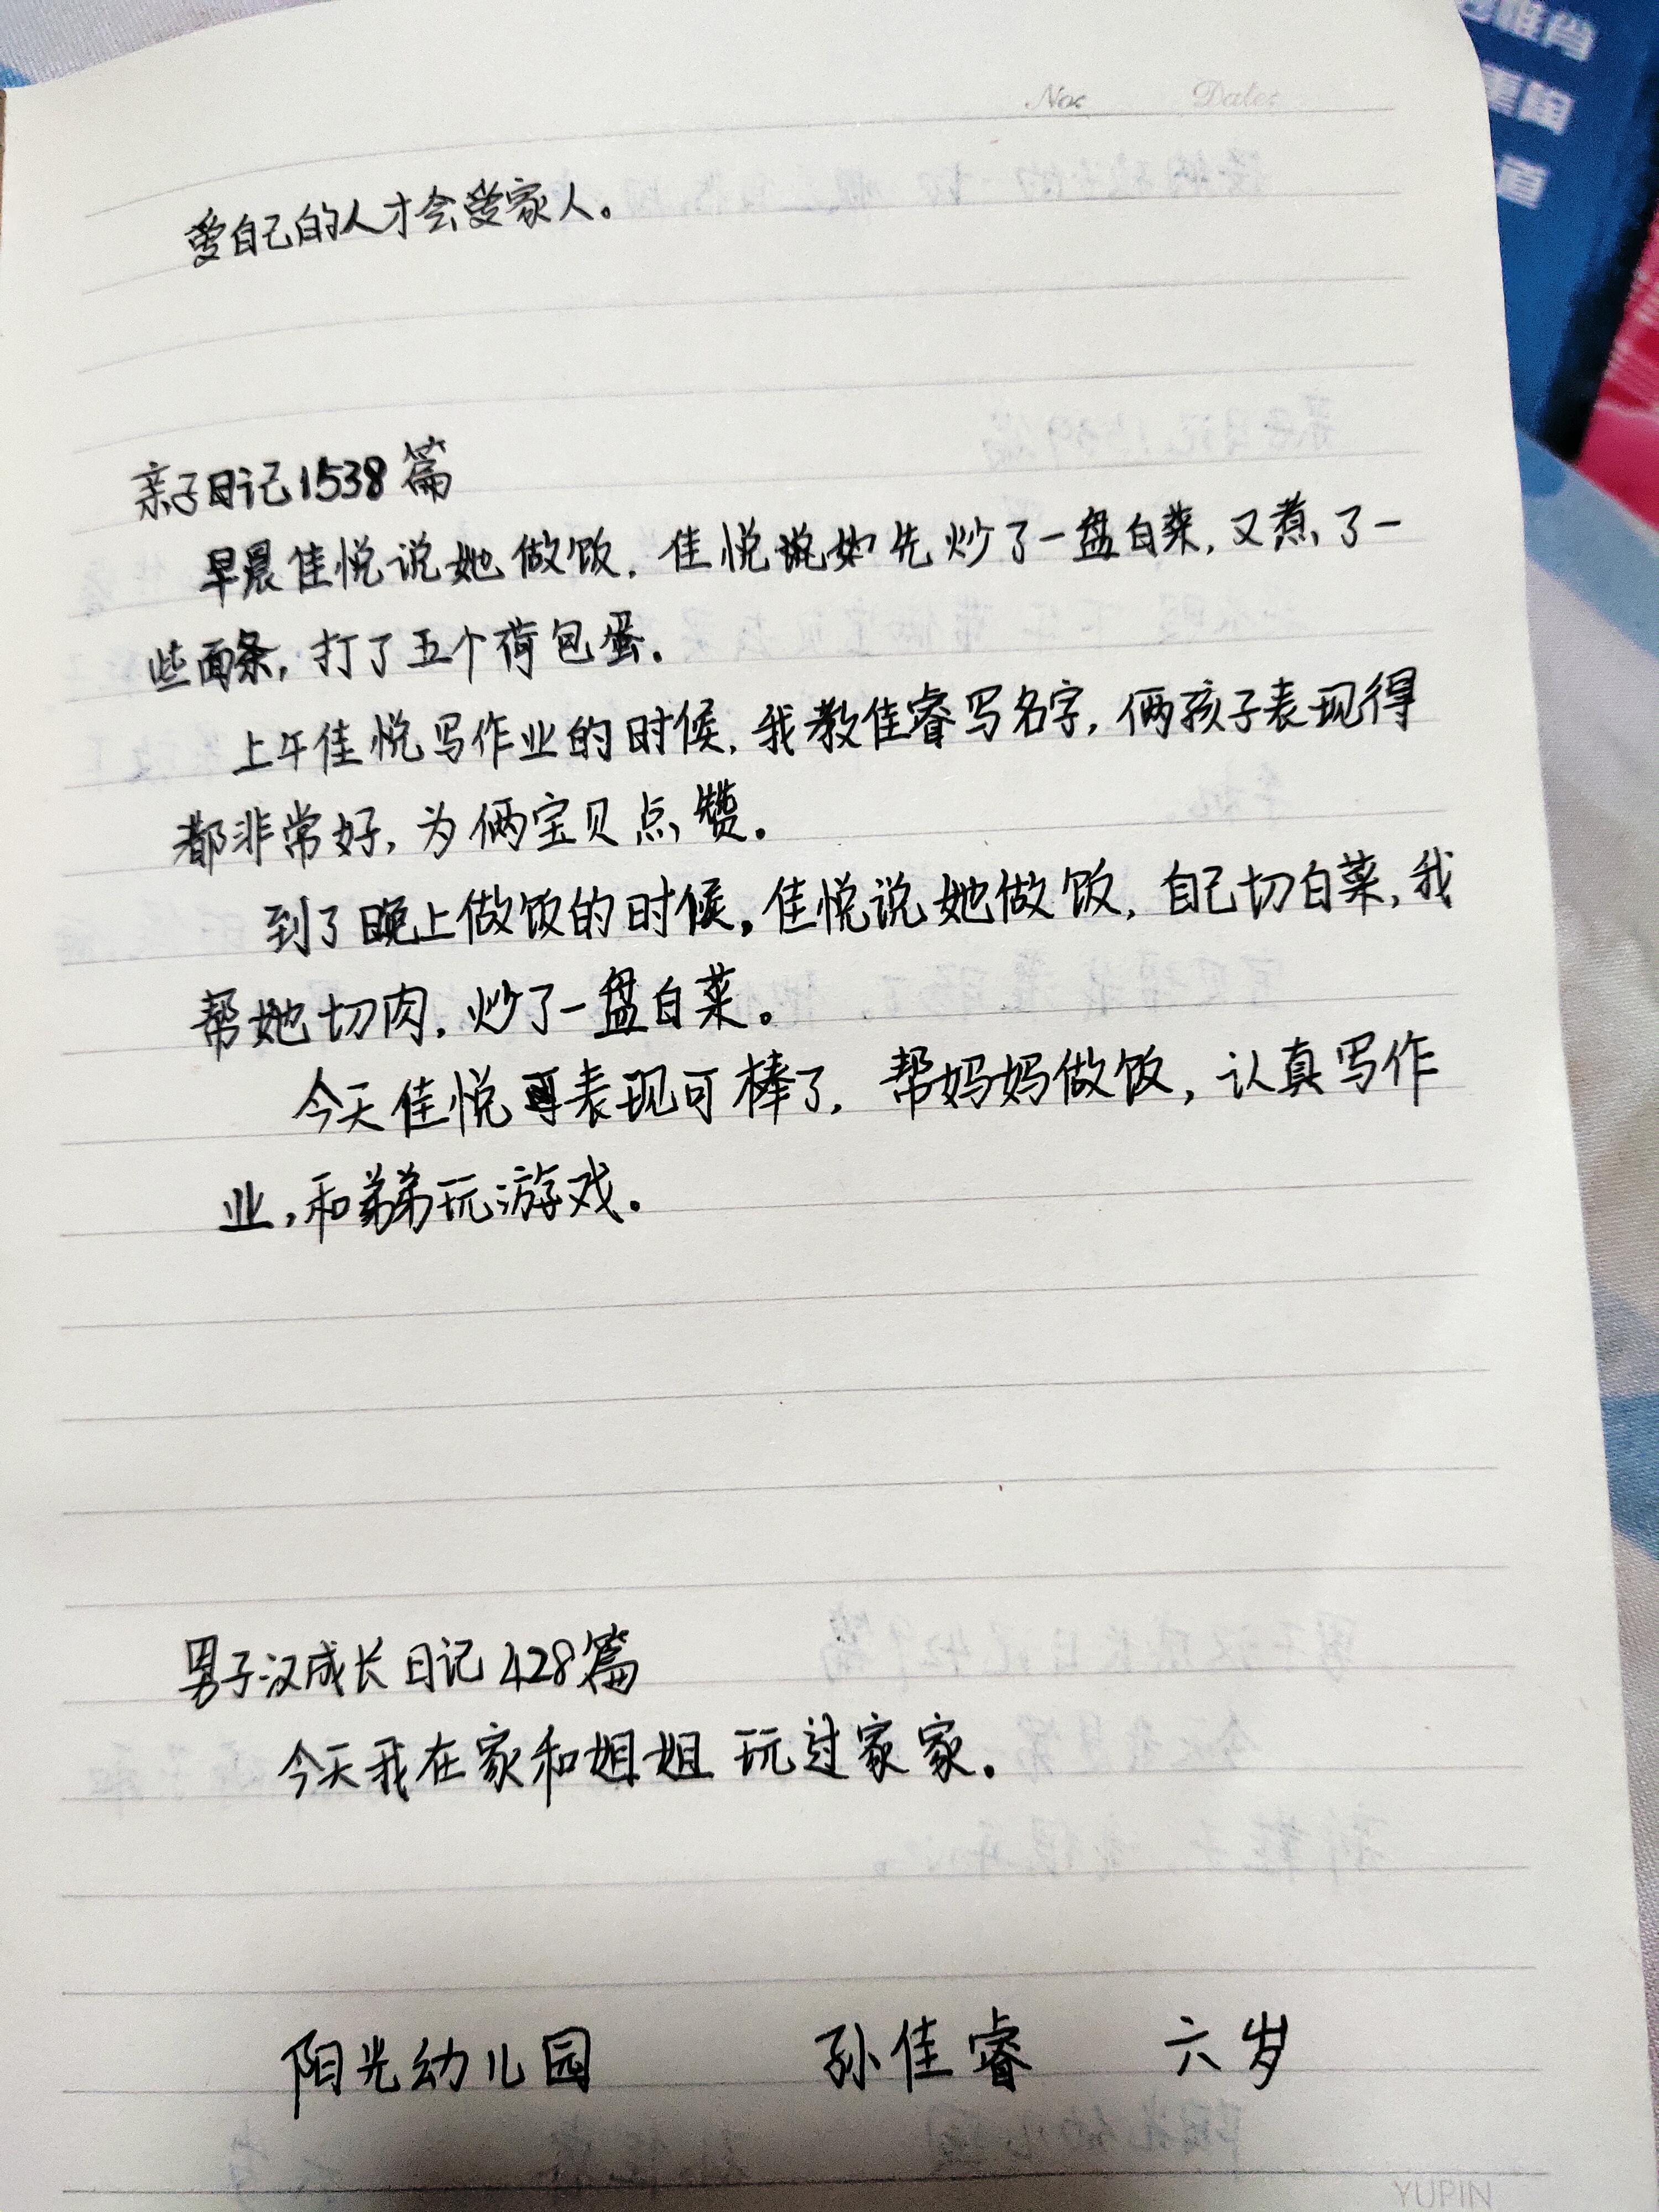 No: Date:
爱自己的人才会爱家人。
亲子日记1538篇
早晨佳悦说她做饭,佳悦说她先炒了一盘白菜,又煮了一
些面条,打了五个荷包蛋。
上午佳悦写作业的时候,我教佳睿写名字,俩孩子表现得
都非常好,为俩宝贝点赞。
到了晚上做饭的时候,佳悦说她做饭,自己切白菜,我
帮她切肉,炒了一盘白菜。
今天佳悦表现可棒了,帮妈妈做饭,认真写作
业,和弟弟玩游戏。
男子汉成长日记428篇
今天我在家和姐姐玩过家家。
阳光幼儿园 孙佳睿 六岁
YUPIN